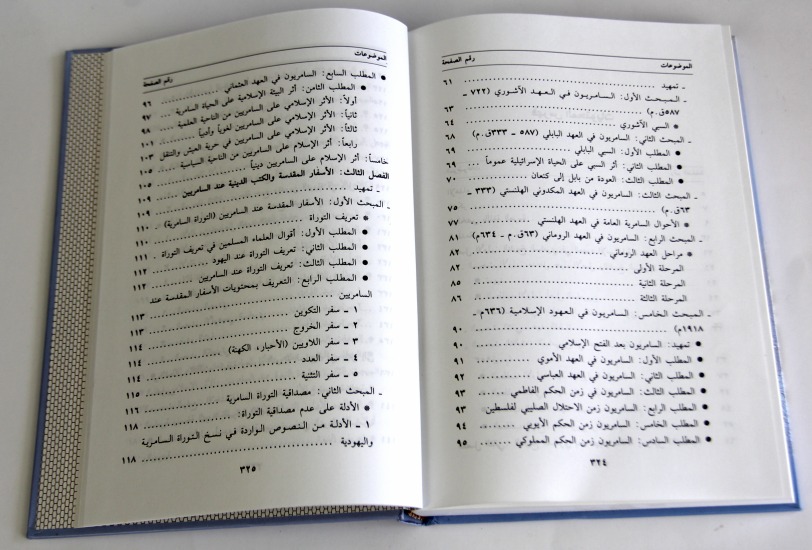 الموضوعات رقم الصفحة
ـ تمهيد ........ ٦١
ـ المبحث الأول: السامريون في العهد الآشوري (٧٢٢ ـ
٥٨٧ق.م) ........ ٦٣
● السبي الآشوري ........ ٦٤
ـ المبحث الثاني: السامريون في العهد البابلي (٥٨٧ ـ ٣٣٣ق.م) ٦٨
● المطلب الأول: السبي البابلي ........ ٦٩
● المطلب الثاني: أثر السبي على الحياة الإسرائيلية عموماً ... ٦٩
● المطلب الثالث: العودة من بابل إلى كنعان ........ ٧٠
ـ المبحث الثالث: السامريون في العهد المكدوني الهلنستي (٣٣٣ ـ
٦٣ق.م) ........ ٧٥
● الأحوال السامرية العامة في العهد الهلنستي ........ ٧٧
ـ المبحث الرابع: السامريون في العهد الروماني (٦٣ق.م ـ ٦٣٤م) ٨١
● مراحل العهد الروماني ........ ٨٢
المرحلة الأولى ........ ٨٢
المرحلة الثانية ........ ٨٥
المرحلة الثالثة ........ ٨٦
ـ المبحث الخامس: السامريون في العهود الإسلامية (٦٣٦م ـ
١٩١٨م) ........ ٩٠
● تمهيد: السامريون بعد الفتح الإسلامي ........ ٩٠
● المطلب الأول: السامريون في العهد الأموي ........ ٩١
● المطلب الثاني: السامريون في العهد العباسي ........ ٩٢
● المطلب الثالث: السامريون زمن الحكم الفاطمي ........ ٩٣
● المطلب الرابع: السامريون زمن الاحتلال الصليبي لفلسطين . ٩٣
● المطلب الخامس: السامريون زمن الحكم الأيوبي ........ ٩٤
● المطلب السادس: السامريون زمن الحكم المملوكي ........ ٩٥
٣٢٤
الموضوعات رقم الصفحة
● المطلب السابع: السامريون في العهد العثماني ........ ٩٦
● المطلب الثامن: أثر البيئة الإسلامية على الحياة السامرية ... ٩٧
أولاً: الأثر الإسلامي على السامريين من الناحية العلمية ... ٩٨
ثانياً: الأثر الإسلامي على السامريين لغوياً وأدبياً ........ ١٠١
ثالثاً: الأثر الإسلامي على السامريين في حرية العيش والتنقل ١٠٣
رابعاً: أثر الإسلام على السامريين من الناحية السياسية ... ١٠٥
خامساً: أثر الإسلام على السامريين دينياً ........ ١٠٥
الفصل الثالث: الأسفار المقدسة والكتب الدينية عند السامريين ... ١٠٩
ـ تمهيد ........ ١٠٩
ـ المبحث الأول: الأسفار المقدسة عند السامريين (التوراة السامرية) . ١١٠
● تعريف التوراة ........ ١١٠
● المطلب الأول: أقوال العلماء المسلمين في تعريف التوراة . ١١١
● المطلب الثاني: تعريف التوراة عند اليهود ........ ١١٢
● المطلب الثالث: تعريف التوراة عند السامريين ........ ١١٢
● المطلب الرابع: التعريف بمحتويات الأسفار المقدسة عند
السامريين ........ ١١٣
١ ـ سفر التكوين ........ ١١٣
٢ ـ سفر الخروج ........ ١١٤
٣ ـ سفر اللاويين (الأحبار، الكهنة) ........ ١١٤
٤ ـ سفر العدد ........ ١١٤
٥ ـ سفر التثنية ........ ١١٥
ـ المبحث الثاني: مصداقية التوراة السامرية ........ ١١٦
● الأدلة على عدم مصداقية التوراة: ........ ١١٨
١ ـ الأدلة من النصوص الواردة في نسخ التوراة السامرية
واليهودية ........ ١١٨
٣٢٥